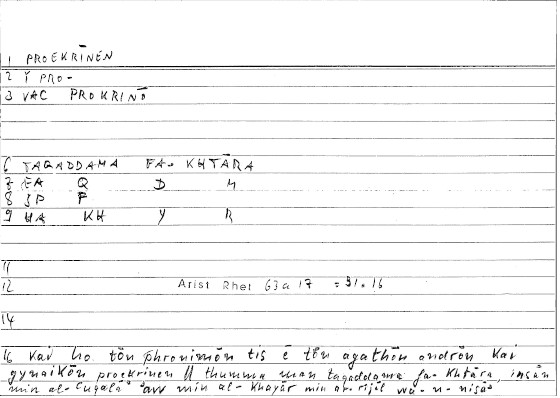 1 PROEKRĪNEN
2 Ī PRO-
3 VAC PROKRINŌ
6 TAQADDAMA FA- KHTĀRA
7 EA Q D M
8 JP F
9 HA KH Y R
11
12 Arist Rhet 63a 17 = 31.16
14
16 Kai ho tōn phronimōn tis ē tōn agathōn andrōn kai
gynaikōn proekrinen // thumma man taqaddama fa- khtāra insān
min al- ʿuqalāʾ aw min al- khayār min ar-rijāl wa- n- nisāʾ